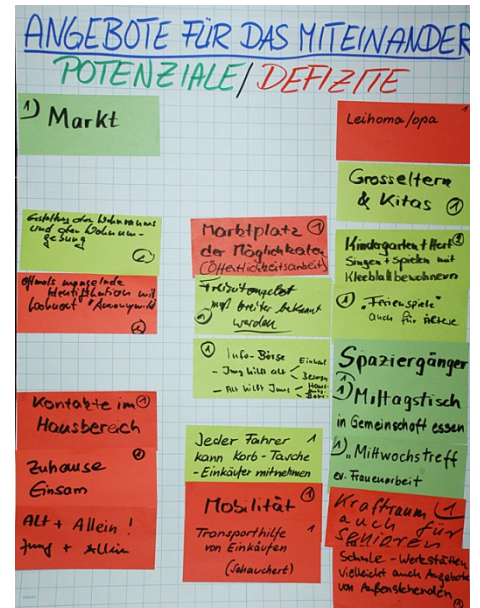 ANGEBOTE FÜR DAS MITEINANDER
POTENZIALE/DEFIZITE
1) Markt
Gestaltung des Wohnraums
und der Wohnum-
gebung
2
oftmals mangelnde
Identifikation mit
Wohnort "Anonymität"
2
Kontakte im 1
Hausbereich
Zuhause
Einsam
Alt + Allein !
Jung + Allein
Marktplatz 1
der Möglichkeiten
(Öffentlichkeitsarbeit)
Freizeitangebot
muß breiter bekannt
werden
1 Info-Börse
- Jung hilft alt
Einkauf
Besorg
- Alt hilft Jung
Haus
Jeder Fahrer 1
kann Korb-Tasche
-Einkäufer mitnehmen
Mobilität 1
Transporthilfe 1
von Einkäufen
(Schauchert)
1
Leihoma/opa
Grosseltern
& Kitas 1
Kindergarten + Hort
Singen + Spielen mit
Kleeblattbewohnern
1 „Ferienspiele"
auch für Ältere
Spaziergänger
1) Mittagstisch
in Gemeinschaft essen
1) „Mittwochstreff
ev. Frauenarbeit
Kraftraum 1
auch für
Senioren
Schule - Werkstätten
vielleicht auch Angebote
von Außenstehenden